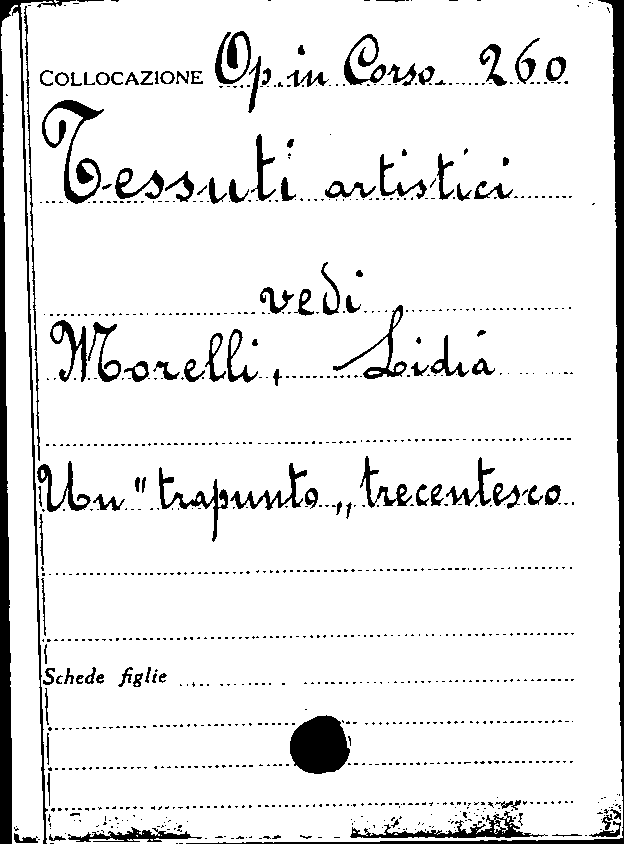 COLLOCAZIONE Op. in Corso. 260
Tessuti artistici
vedi
Morelli, Lidia
Un "trapunto„ trecentesco
Schede figlie